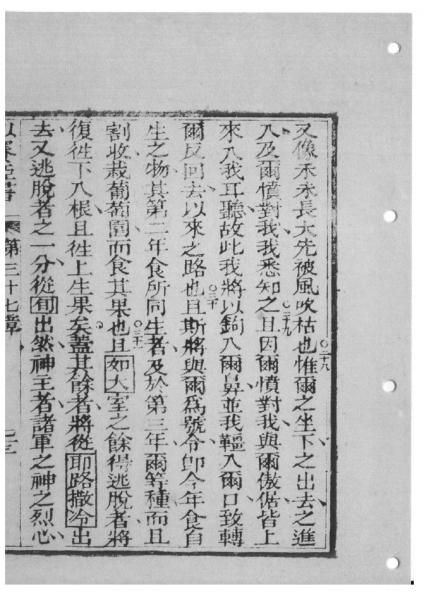 又像禾未長大先被風吹枯也○二十八惟爾之坐下之出去之進
入及爾憤對我我悉知之○二十九且因爾憤對我與爾傲倨皆上
來入我耳聽故此我將以鈎入爾鼻並我韁入爾口致轉
爾反回去以來之路也○三十且斯將與爾爲號令卽今年食自
生之物其第二年食所同生者及於第三年爾等種而且
割收栽葡萄園而食其果也○三十一且如大室之餘得逃脫者將
復徃下入根且徃上生果矣蓋其餘者將從耶路撒冷出
去又逃脫者之一分從旬出然神王者諸軍之神之烈心
第三十七章